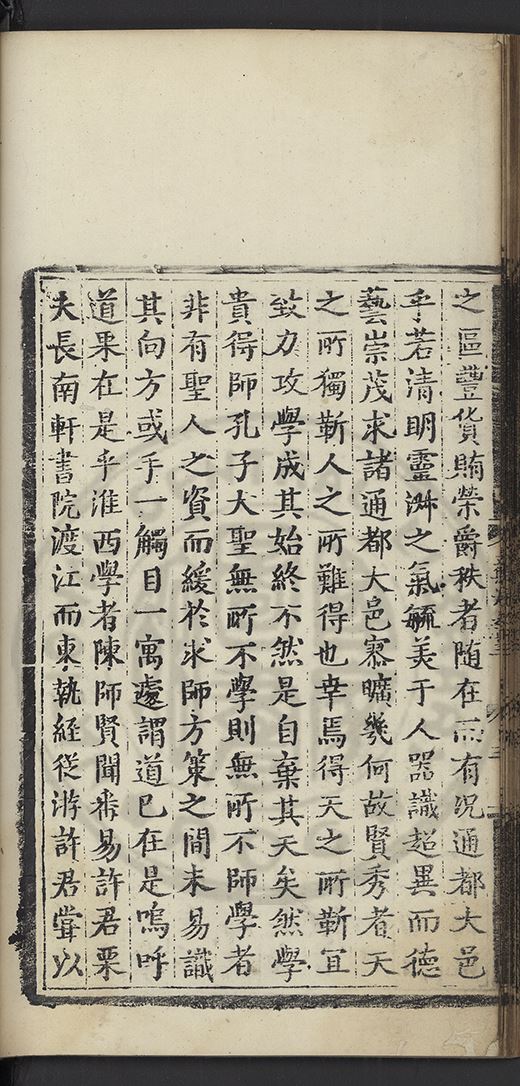 之區豐貨賄榮爵秩者随在而有况通都大邑
乎若清明靈淋之氣毓美于人器識超異而德
藝崇茂求諸通都大邑寥曠幾何故賢秀者天
之所獨靳人之所難得也幸焉得天之所靳宜
致力攻學成其始終不然是自棄其天矣然學
貴得師孔子大聖無所不學則無所不師學者
非有聖人之資而緩於求師方策之間未易識
其向方或乎一觸目一寓遽謂道已在是嗚呼
道果在是乎淮西學者陳師賢聞番易許君栗
夫長南軒書院渡江而東執経従游許君嘗以